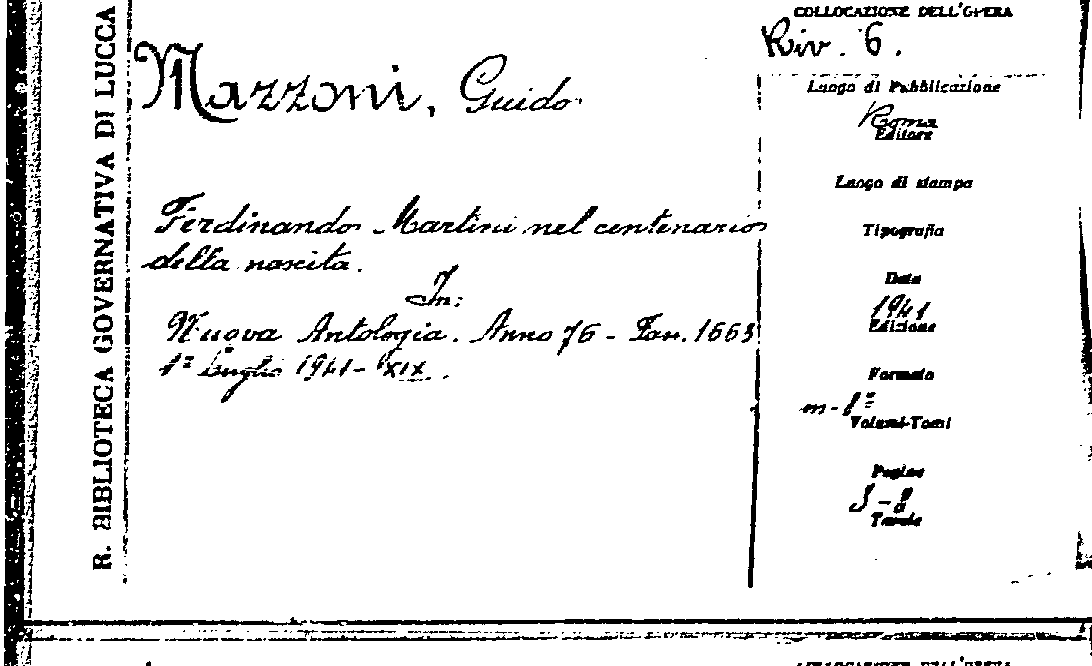 R. BIBLIOTECA GOVERNATIVA DI LUCCA
Mazzoni, Guido
Ferdinando Martini nel centenario
della nascita.
In:
Nuova Antologia. Anno 76 - Fasc. 1663
1º Luglio 1941 - XIX.
COLLOCAZIONE DELL'OPERA
Riv. 6.
Luogo di Pubblicazione
Roma
Editore
Luogo di stampa
Tipografia
Data
1941
Edizione
Formato
in-8º
Volumi-Tomi
Pagine
3-8
Tavole
COLLOCAZIONE DELL'OPERA